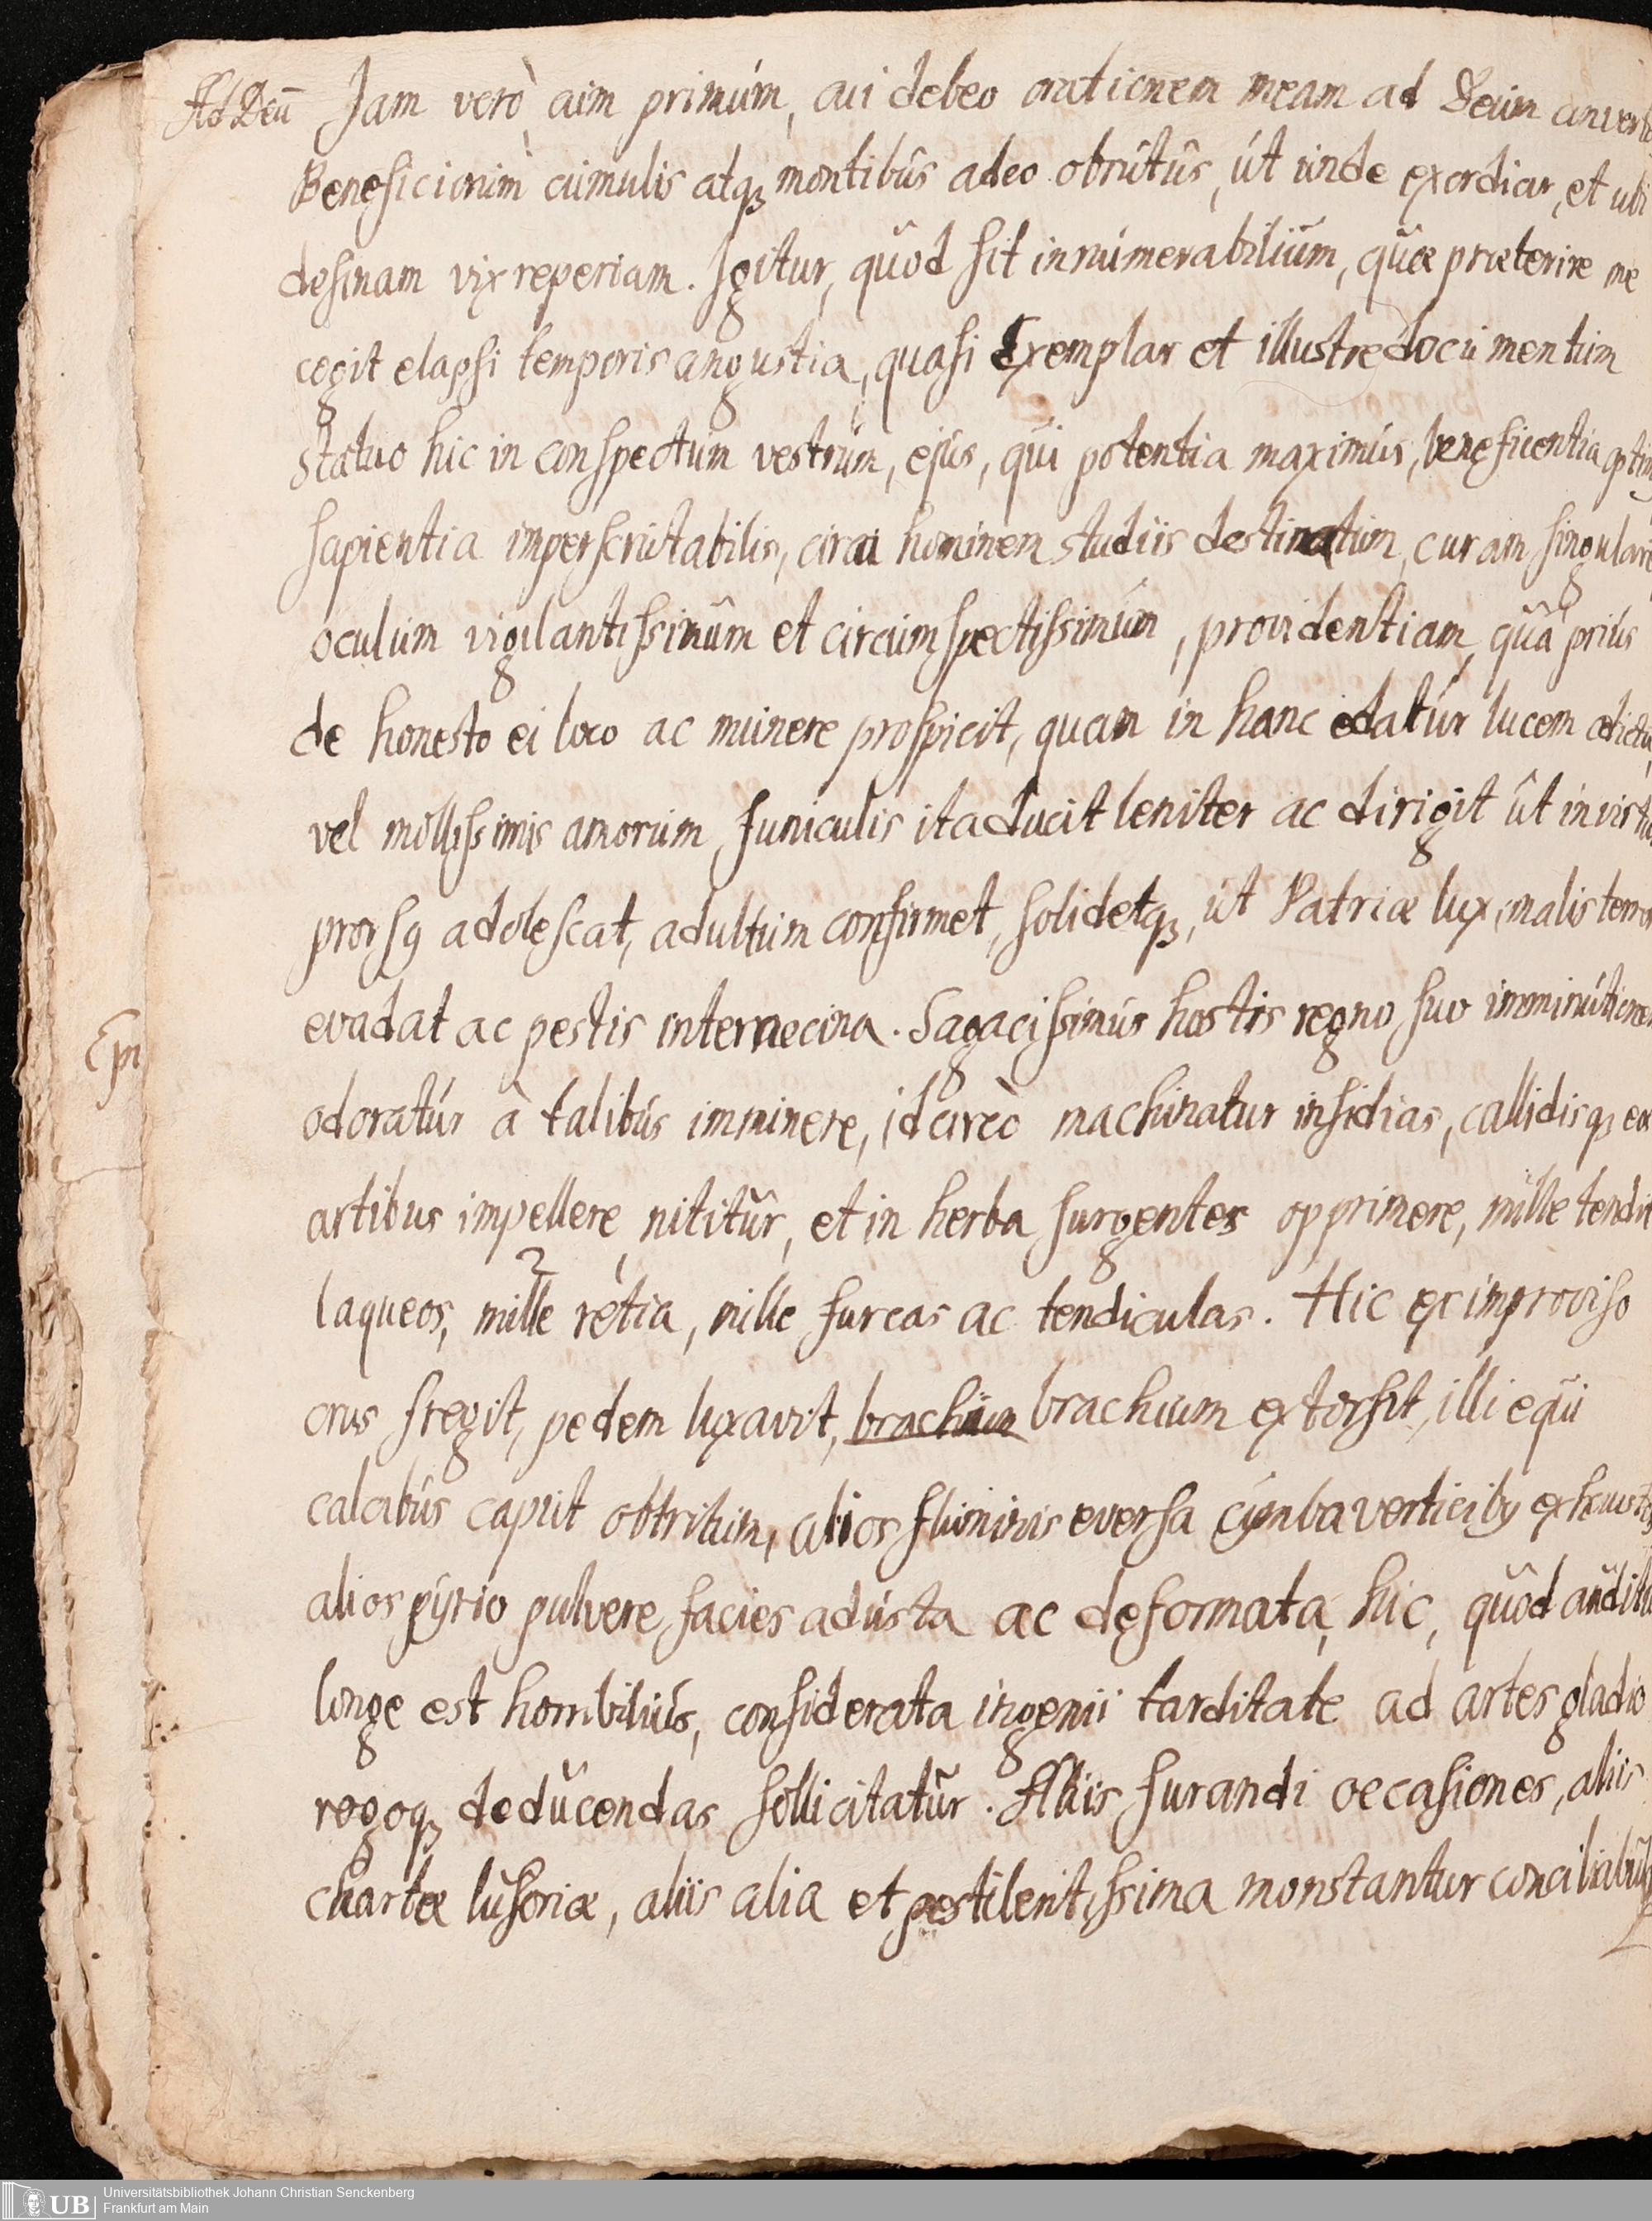 Ad Deū Jam verò cùm primùm, cui debeo orationem meam ad Deum converto
Beneficiorum cumulis atq; montibus adeo obrutus, ut unde exordiar, et ubi
desinam vix reperiam. Igitur, quod sit innumerabilium, quæ præterire me
cogit elapsi temporis angustia, quasi Exemplar et illustre documentum
statuo hic in conspectum vestrum, ejus, qui potentia maximus, beneficentia optim
sapientia imperscrutabilis, circa hominem studiis destinatum, curam singulare
oculum vigilantissimum et circumspectissimum, providentiam, quâ prius
de honesto ei loco ac munere prospicit, quam in hanc edatur lucem
vel mollissimis amorum funiculis ita ducit leniter ac dirigit ut in virtu
prorsq adolescat, adultum confirmet, solidetq;, ut Patriæ lux, malis terror
evadat ac pestis internecina. Sagacissimus hostis regno suo imminutionem
odoratur à talibus imminere, idcircò machinatur insidias, callidisq; eos
artibus impellere nititur, et in herba surgentes opprimere, mille tendit
laqueos, mille retia, mille furcas ac tendiculas. Hic ex improviso
crus fregit, pedem luxavit, brachium brachium extorsit, illi equi
calcibus caput obtritum, alios fluminis eversa cymba verticibq exhausit
alios pyrio pulvere facies adusta ac deformata, hic, quod auditu
longe est horribilius, considerata ingenii tarditate ad artes gladio
rogoq; deducendas sollicitatur. Aliis furandi occasiones, aliis
chartæ lusoriæ, aliis alia et pestilentissima monstantur conciliabula
Epi
Universitätsbibliothek Johann Christian Senckenberg
Frankfurt am Main
UB